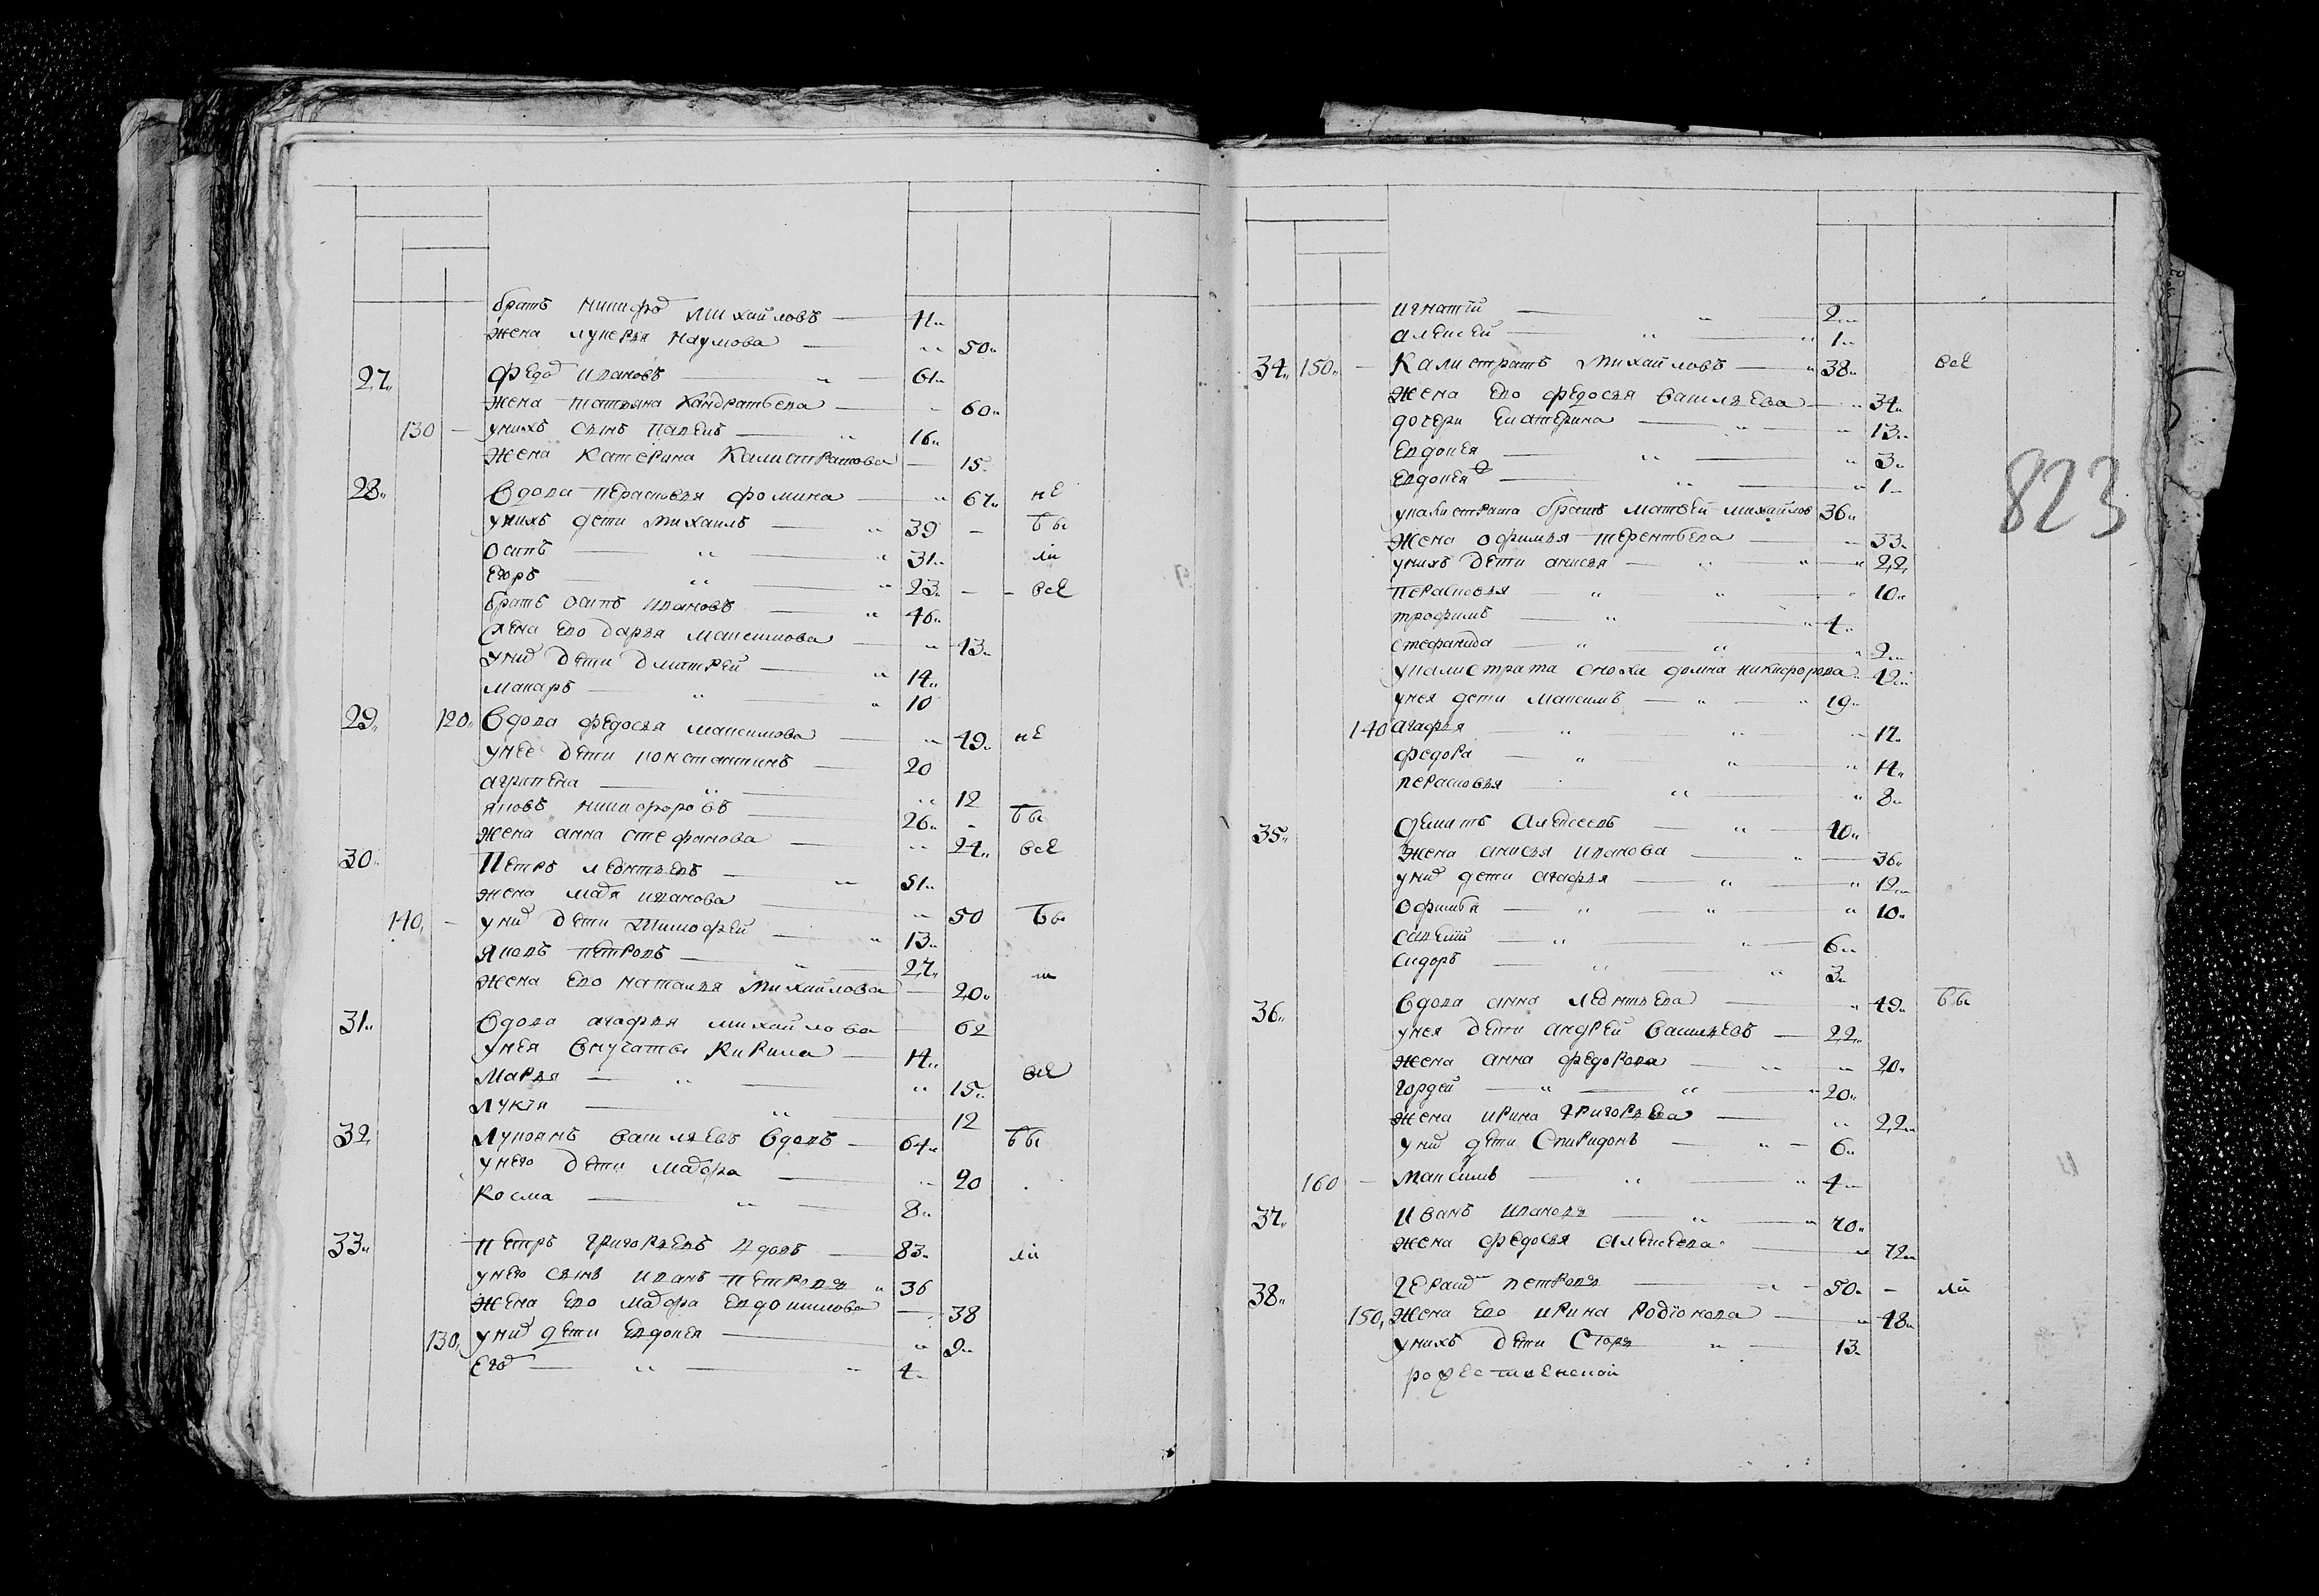 братъ никифоръ михайловъ — 71
жена лукерья наумова — 50
27 федоръ ивановъ — 61
жена татьяна кандратьева — 60
130 — унихъ сынъ павелъ — 16
жена катерина калистратова — 15
28 вдова парасковья фомина — 67 не
унихъ дети михаилъ — 39 — бы
осипъ — 31 ли
егоръ — 23 — — все
братъ осипъ ивановъ — 46
жена ево дарья максимова — 43
унихъ дети дматрей — 14
макаръ — 10
29 120 вдова федосья максимова — 49 не
унее дети константинъ — 20
агрипена — 12
яковъ никифоровъ — 26 - бы
жена анна стефанова — 24 все
30 Петръ леонтьевъ — 51
жена марья иванова — 50 бы
140 — унихъ дети тимофей — 13
яковъ петровъ — 27
жена ево наталья михайлова — 20
31 вдова агафья михайлова — 62
унея внучаты кирила — 14
марья — 15 все
лукія — 12
32 лукоянъ васильевъ вдовъ — 64 бы
унего дети мавра — 20
косма — 8
33 петръ григорьевъ вдовъ — 83 ли
унего сынъ иванъ петровъ 36
жена ево мавра евдокимова — 38
130 унихъ дети евдокея — 9
егоръ — 4
игнатій — 2
алексей — 1
34 150 — калистратъ михайловъ — 38 все
жена ево федосья васильева — 34
дочери екатерина — 13
евдокея — 3
евдокея 2 — 1
укалистрата братъ матвей михайловъ 36
жена офимья терентьева — 33
унихъ дети анисья — 22
парасковья — 10
трофимъ — 4
стефанида — 2
укалистрата сноха домна никифорова 42
унея дети максимъ — 19
140 агафья — 17
федора — 14
парасковья — 8
35 демитъ алексеевъ — 40
жена анисья иванова — 36
унихъ дети агафья — 12
офимья — 10
савелій — 6
сидоръ — 3
36 вдова анна леонтьева — 49 бы
унея дети андрей васильевъ — 22
жена анна федорова — 20
гордей — 20
жена ирина григорьева — 22
унихъ дети спиридонъ — 6
160 — максимъ — 4
37 иванъ ивановъ — 70
жена федосья алексеева — 72
38 герасимъ петровъ — 50 — ли
150 жена ево ирина родіонова — 48
унихъ дети — 13
823